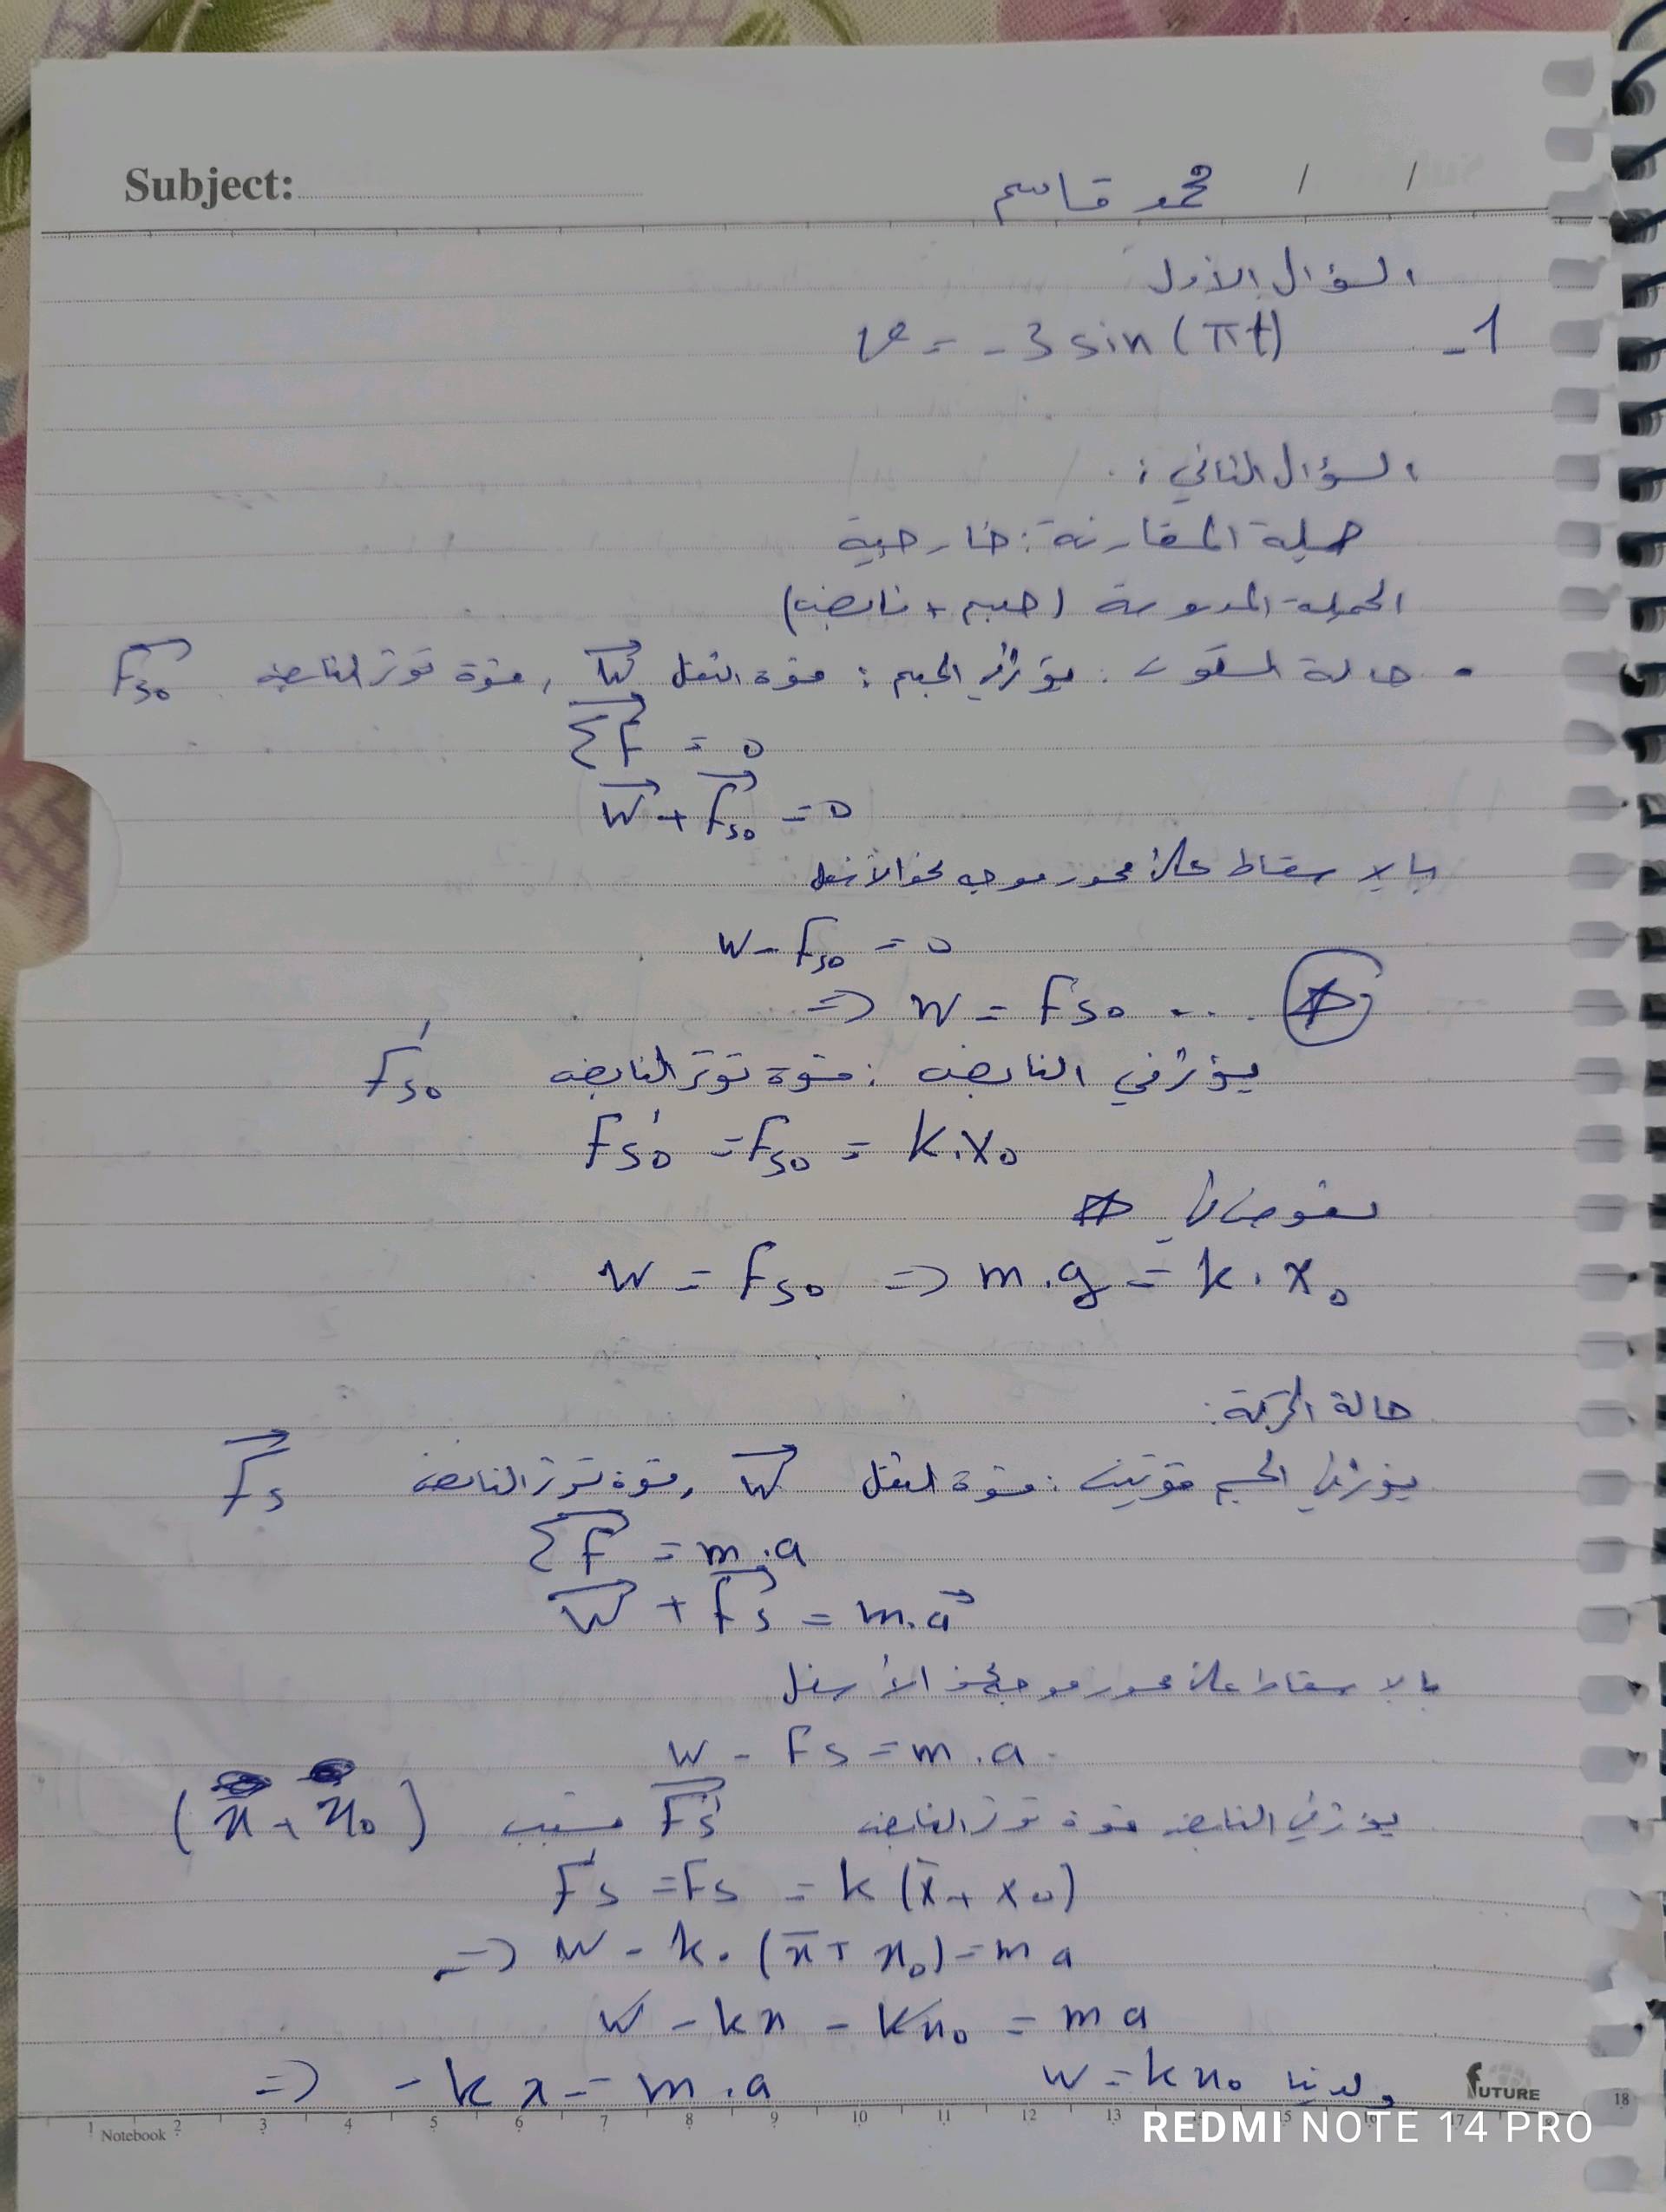 Subject:
محمد قاسم / /
السؤال الأول
1- v = -3 sin(πt)
السؤال الثاني :
جملة المقارنة : خارجية
الجملة المدروسة (جسم + نابض)
• حالة السكون : يؤثر في الجسم : قوة الثقل W , قوة توتر النابض Fs0
ΣF = 0
W + Fs0 = 0
بالاسقاط على محور موجه نحو الأسفل
W - Fs0 = 0
=> W = Fs0 ... *
يؤثر في النابض : قوة توتر النابض F's0
F's0 = Fs0 = k.x0
نعوض في *
W = Fs0 => m.g = k.x0
حالة الحركة :
يؤثر في الجسم قوتين : قوة الثقل W , قوة توتر النابض Fs
ΣF = m.a
W + Fs = m.a
بالاسقاط على محور موجه نحو الأسفل
W - Fs = m.a
يؤثر في النابض قوة توتر النابض F's تسبب (x + x0)
F's = Fs = k(x̄ + x0)
=> W - k.(x̄ + x0) = m a
W - kx - kx0 = m a
ولدينا W = kx0 => -kx = m.a
FUTURE
1 Notebook 2 3 4 5 6 7 8 9 10 11 12 13 14 15 16 17 18
REDMI NOTE 14 PRO